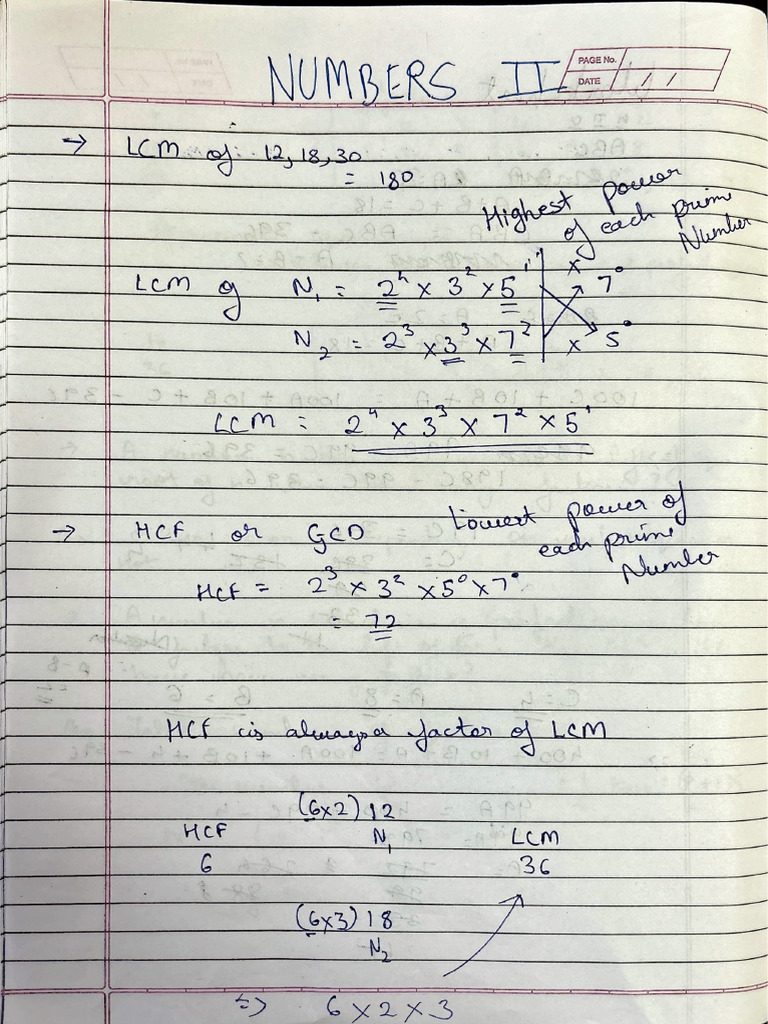 NUMBERS II
PAGE No.
DATE / /
→ LCM of 12, 18, 30
= 180
Highest power
of each prime
Number
LCM of N₁ = 2⁴ × 3² × 5¹ × 7⁰
N₂ = 2³ × 3³ × 7² × 5⁰
LCM = 2⁴ × 3³ × 7² × 5¹
→ HCF or GCD
Lowest power of
each prime
Number
HCF = 2³ × 3² × 5⁰ × 7⁰
= 72
HCF is always a factor of LCM
(6×2) 12
HCF N₁ LCM
6 36
(6×3) 18
N₂
=> 6 × 2 × 3